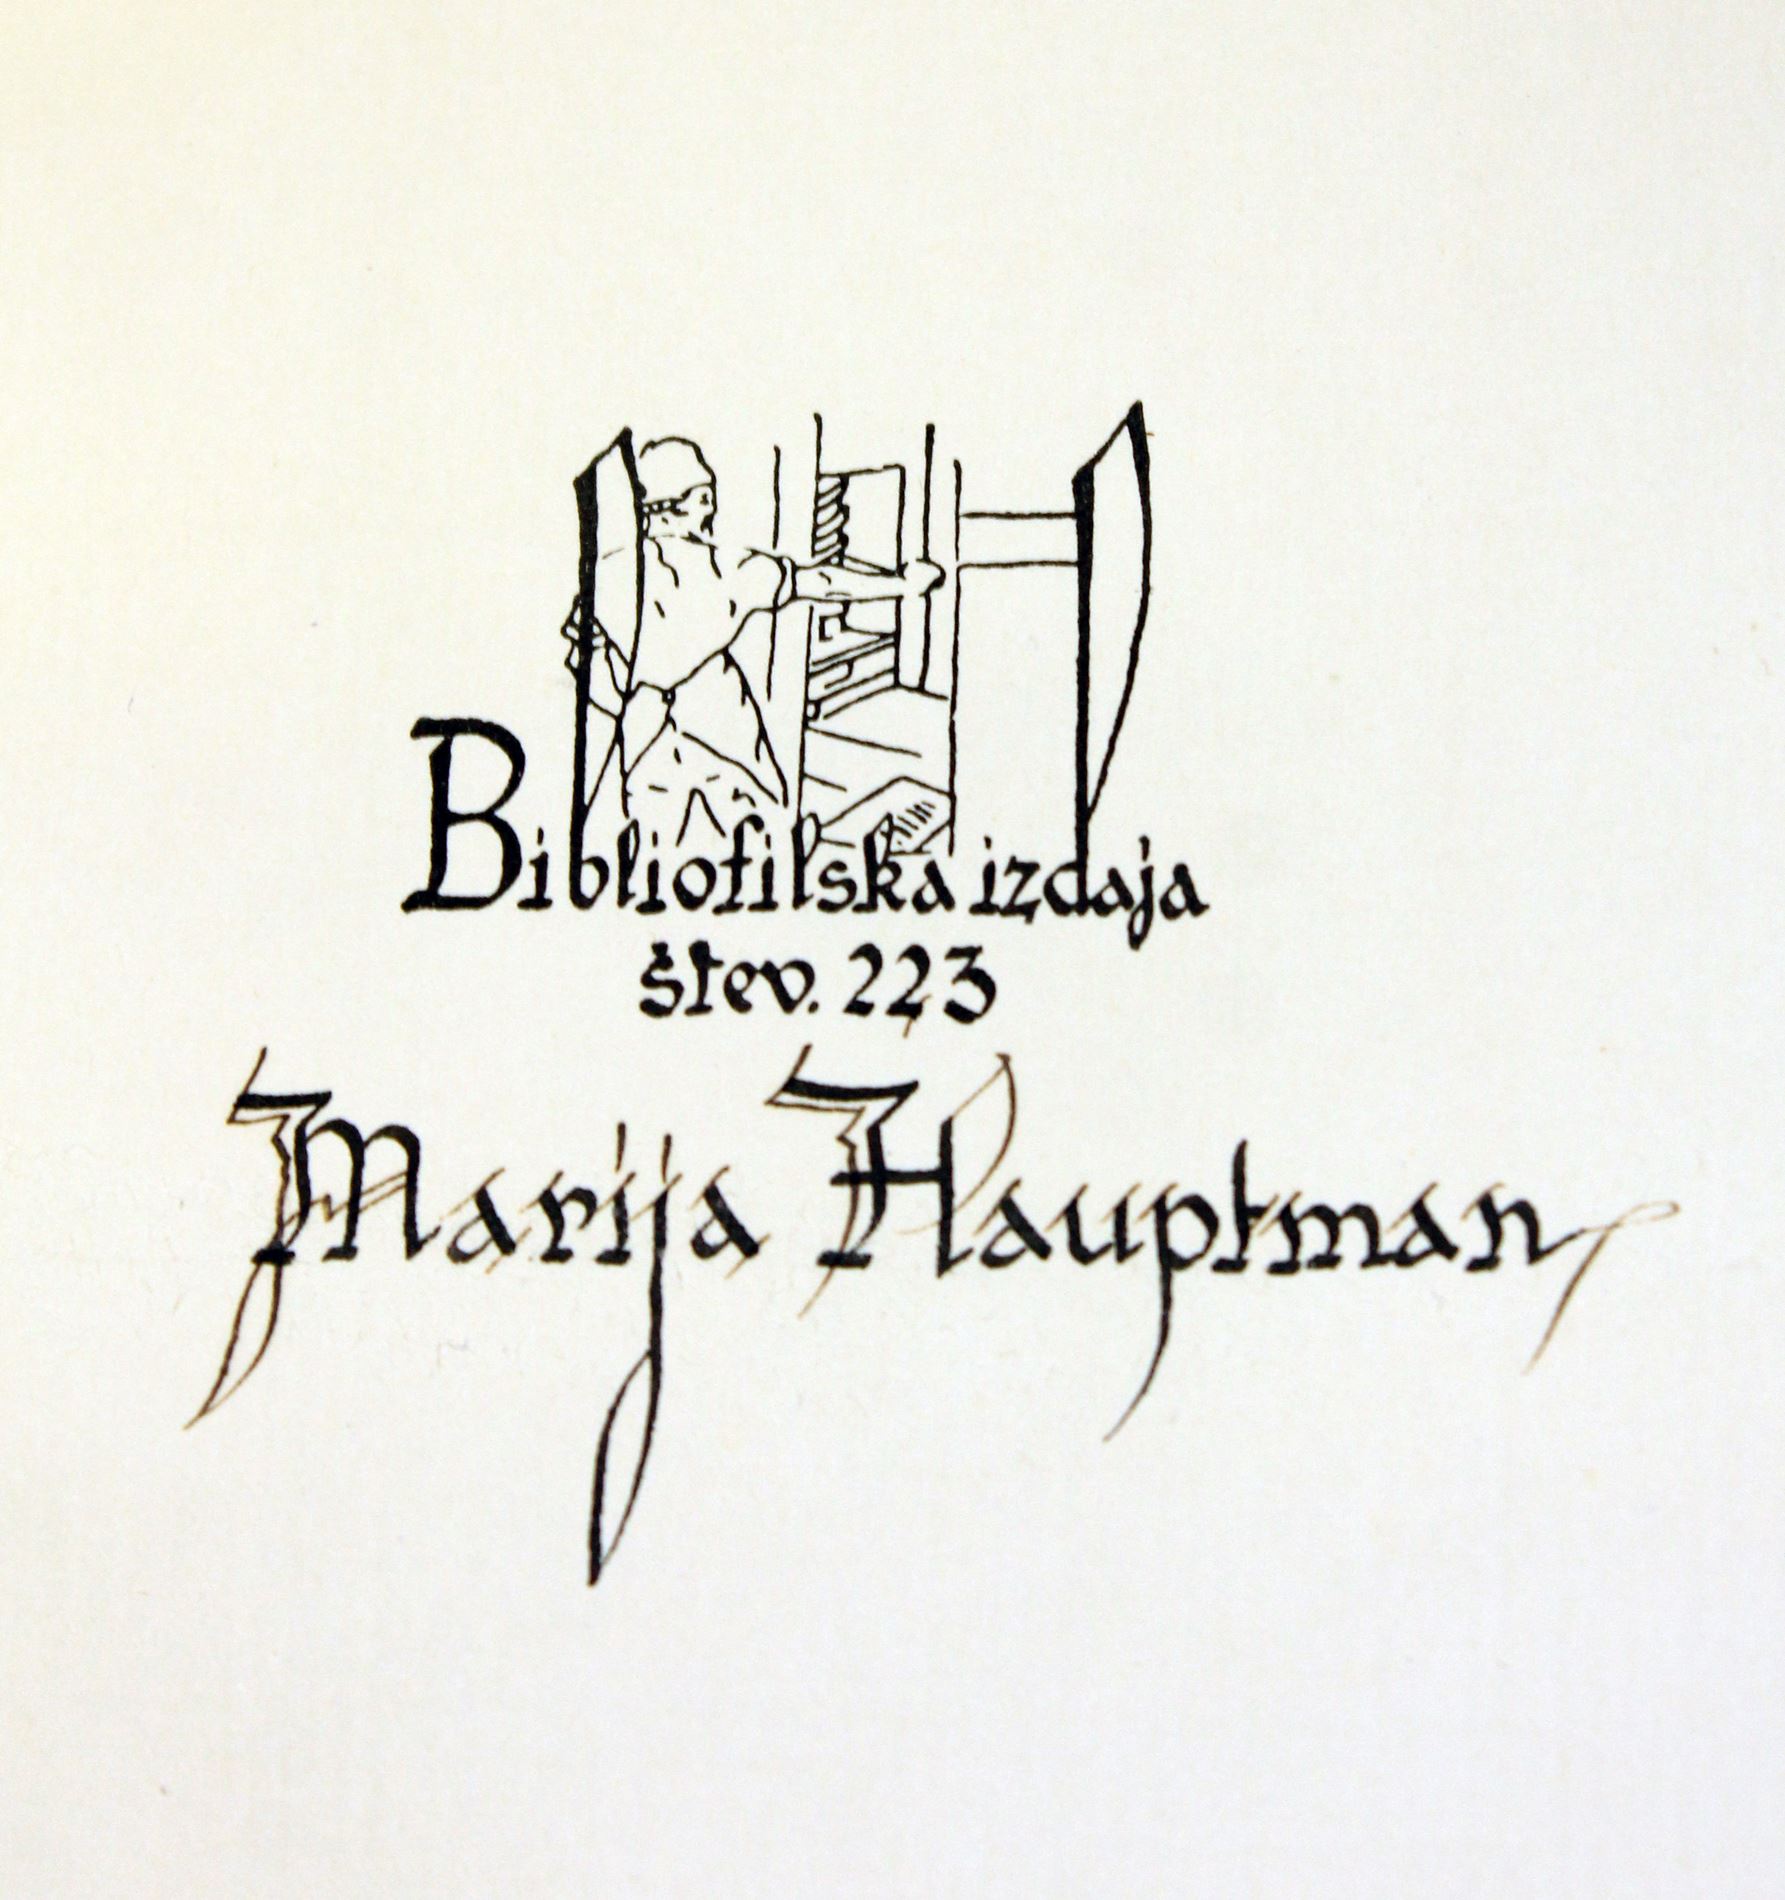 Bibliofilska izdaja
štev. 223
Marija Hauptman